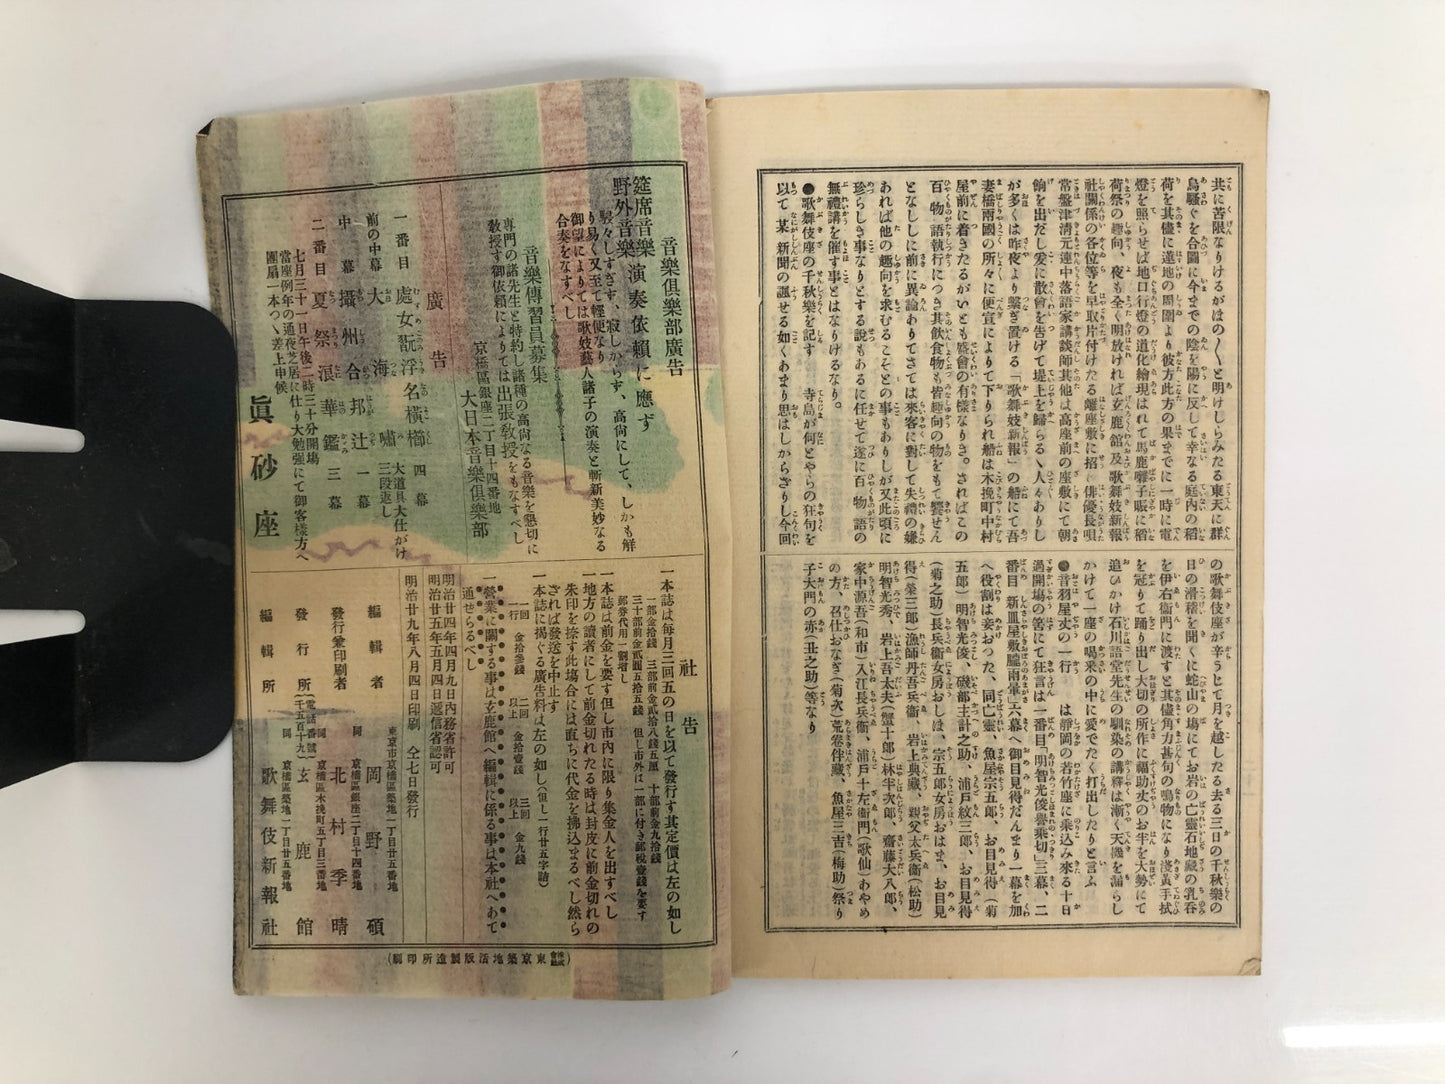 共に苦限なりけるがほの〴〵と明けしらみたる東天に群
烏騒ぐを合圖に今までの陰を陽に反して幸なる庭内の稻
荷を其儘に蓮地の周圍より彼方此方の果までに一時に電
燈を照らせば地口行燈の道化繪現はれて馬鹿囃子賑に稻
荷祭の趣向、夜も全く明放ければ玄鹿館及歌舞妓新報
社關係の各位等を早取片付けたる離座敷に招じ俳優長唄
常盤津清元連中落語家講談師其他は高座前の座敷にて朝
餉を出だし爰に散會を告げて堤上を歸らるゝ人々ありし
が多くは昨夜より繫ぎ置ける「歌舞妓新報」の船にて吾
妻橋兩國の所々に便宜によりて下りられ船は木挽町中村
屋前に着きたるがいとも盛會の有樣なりき。さればこの
百物語執行につき其飲食物も皆趣向の物をもて饗せん
となしゝに前に異論ありてさては來客に對して失禮の嫌
あれば他の趣向を求むるこそとの事もありしが又此頃に
珍らしき事なりとする説もあるに任せて遂に百物語の
無禮講を催す事とはなりけるなり。
●歌舞伎座の千秋樂を記す　寺島が何とやらの狂句を
以て某新聞の諷せる如くあまり思はしからざりし今回
の歌舞伎座が辛うじて月を越したる去る三日の千秋樂の
日の滑稽を聞くに蛇山の場にてお岩の亡靈石地藏の乳呑
を伊右衞門に渡すと其儘角力甚句の鳴物になり淺黃手拭
を冠りて踊り出し大切の所作に福助丈のお半を大勢にて
追ひかけ石川語堂先生の馴染の講釋は漸く天機を漏らし
かけて一座の喝采の中に愛でたく打出したりと言ふ
●音羽屋丈の一行　は靜岡の若竹座に乘込み來る十日
過開場の筈にて狂言は一番目「明智光俊譽乘切」三幕、二
番目「新皿屋敷朧雨暈」六幕へ御目見得だんまり一幕を加
へ役割は妾おつた、同亡靈、魚屋宗五郎、お目見得（菊
五郎）明智光俊、磯部主計之助、浦戸紋三郎、お目見得
（菊之助）長兵衞女房おしほ、宗五郎女房おはま、お目見
得（榮三郎）漁師丹吾兵衞、岩上典藏、親父太兵衞（松助）
明智光秀、岩上吾太夫（蟹十郎）林半次郎、齋藤大八郎、
家中源吾（和市）入江長兵衞、浦戸十左衞門（歌仙）おやめ
の方、召仕おなぎ（菊次）荒卷伴藏、魚屋三吉（梅助）祭り
子大門の赤（丑之助）等なり
音樂俱樂部廣告
筵席音樂
野外音樂
演奏依賴に應ず
騷々しすぎず、寂しからず、高尚にして、しかも解
り易く又至て輕便なり
御望によりては歌妓藝人諸子の演奏と嶄新美妙なる
合奏をなすべし
音樂傳習員募集
專門の諸先生と特約し諸種の高尚なる音樂を懇切に
敎授す御依賴によりては出張敎授をもなすべし
京橋區銀座二丁目十四番地
大日本音樂俱樂部
廣告
一番目　處女翫浮名橫櫛　四幕
前の中幕　大海嘯　大道具大仕がけ
三段返し
中幕　攝州合邦辻　一幕
二番目　夏祭浪華鑑　三幕
七月三十一日午後二時三十分開場
當座例年の通夜芝居に仕り大勉強にて御客樣方へ
團扇一本つゝ差上申候
眞砂座
社告
一本誌は每月三回五の日を以て發行す其定價は左の如し
一部金拾錢　三部前金貳拾八錢五厘　十部前金九拾錢
三十部前金貳圓五拾五錢　但し市外は一部に付き郵稅壹錢を要す
郵券代用一割增し
一本誌は前金を要す但し市內に限り集金人を出すべし
一地方の讀者にして前金切れたる時は封皮に前金切れの
朱印を捺す此塲合には直ちに代金を拂込まるべし然ら
ざれば發送を中止す
一本誌に揭ぐる廣告料は左の如し（但し一行廿五字詰）
一回　金拾參錢　二回以上　金拾壹錢　三回以上　金九錢
一行
一營業に關する事は玄鹿館へ編輯に係る事は本社へあて
通せらるべし
明治廿四年四月九日內務省許可
明治廿五年五月四日遞信省認可
明治廿九年八月四日印刷　仝七日發行
東京市京橋區築地一丁目廿五番地
編輯者　岡野碩
同　京橋區銀座二丁目十四番地
發行兼印刷者　北村季晴
同　京橋區木挽町五丁目三番地
發行所（電話番號千五百十九）　玄鹿館
同　京橋區築地一丁目廿五番地
編輯所　歌舞伎新報社
（株式會社東京築地活版製造所印刷）